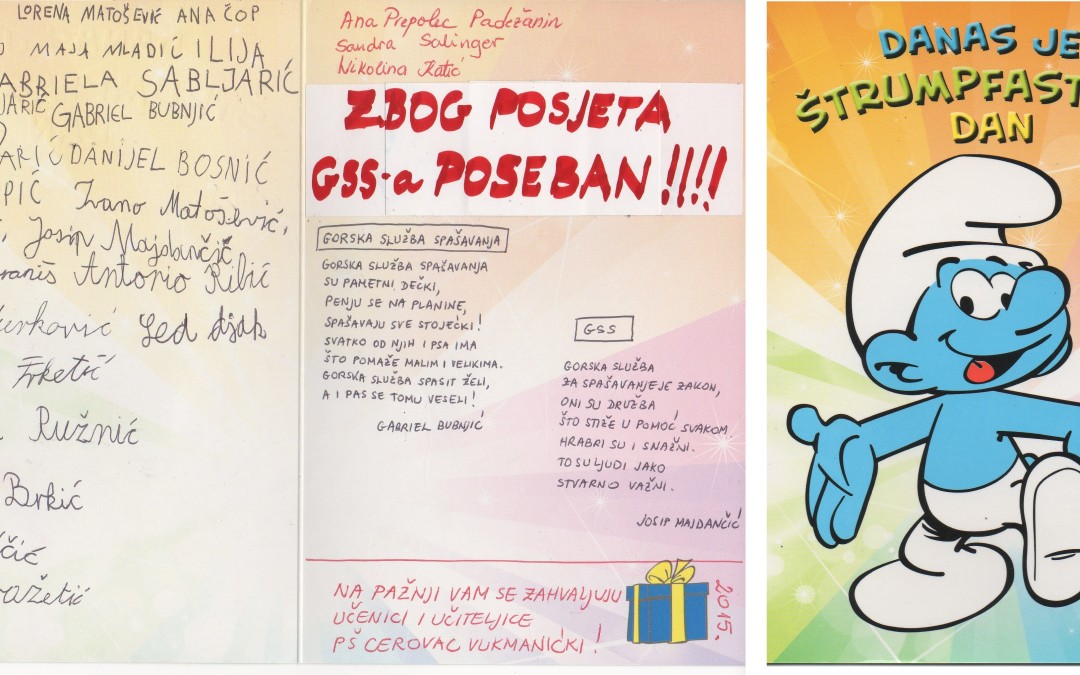 LORENA MATOŠEVIĆ ANA ČOP
MAJA MLADIĆ ILIJA
ABRIELA SABLJARIĆ
JARIĆ GABRIEL BUBNJIĆ
ARIĆ DANIJEL BOSNIĆ
PIĆ Ivano Matošević,
Josip Majdančić
Antonio Ribić
urković
Frketić
Ružnić
Brkić
čić
ažetić
Ana Prepolec Padežanin
Sandra Salinger
Nikolina Katić
ZBOG POSJETA
GSS-a POSEBAN !!!!
GORSKA SLUŽBA SPAŠAVANJA
GORSKA SLUŽBA SPAŠAVANJA
SU PAMETNI DEČKI,
PENJU SE NA PLANINE,
SPAŠAVAJU SVE STOJEĆKI!
SVATKO OD NJIH I PSA IMA
ŠTO POMAŽE MALIM I VELIKIMA.
GORSKA SLUŽBA SPASIT ŽELI,
A I PAS SE TOMU VESELI!
GABRIEL BUBNJIĆ
GSS
GORSKA SLUŽBA
ZA SPAŠAVANJE JE ZAKON,
ONI SU DRUŽBA
ŠTO STIŽE U POMOĆ SVAKOM!
HRABRI SU I SNAŽNI.
TO SU LJUDI JAKO
STVARNO VAŽNI.
JOSIP MAJDANČIĆ
NA PAŽNJI VAM SE ZAHVALJUJU
UČENICI I UČITELJICE
PŠ CEROVAC VUKMANIĆKI!
2015.
DANAS JE
ŠTRUMPFAST
DAN